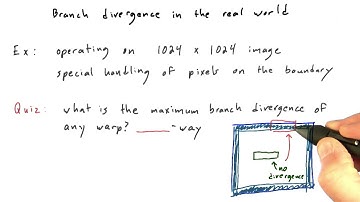 Branch divergence in the real world
Ex: operating on 1024 x 1024 image
special handling of pixels on the boundary
Quiz: what is the maximum branch divergence of
any warp? ____-way
no
divergence